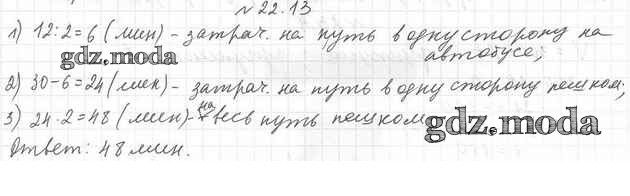 № 22.13
1) 12:2=6 (мин) - затрач. на путь в одну сторону на
автобусе;
gdz.moda
2) 30-6=24 (мин) - затрач. на путь в одну сторону пешком;
3) 24·2=48 (мин) - на весь путь пешком
gdz.moda
Ответ: 48 мин.